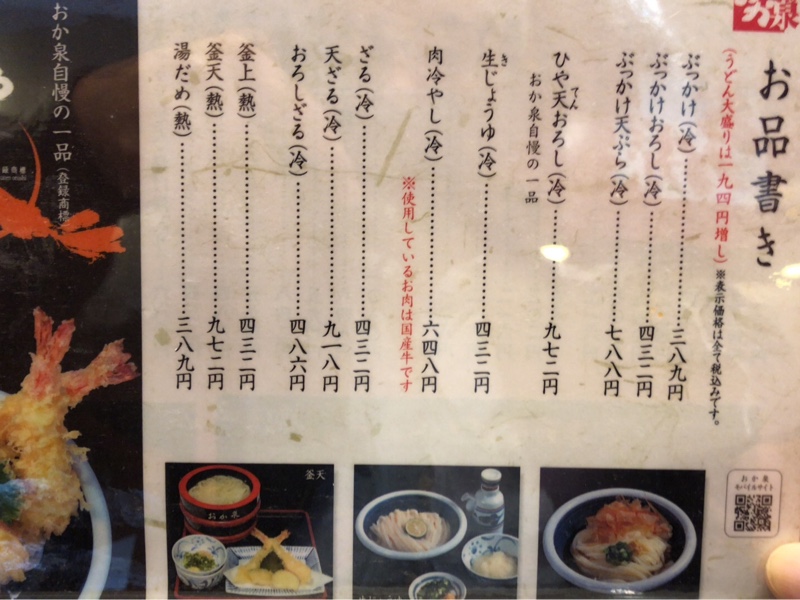 お品書き
(うどん大盛りは一九四円増し)※表示価格は全て税込みです。
ぶっかけ(冷)三八九円
ぶっかけおろし(冷)四三二円
ぶっかけ天ぷら(冷)七八八円
ひや天おろし(冷)九七二円
てん
おか泉自慢の一品
生じょうゆ(冷)四三二円
き
肉冷やし(冷)六四八円
※使用しているお肉は国産牛です
ざる(冷)四三二円
天ざる(冷)九一八円
おろしざる(冷)四八六円
釜上(熱)四三二円
釜天(熱)九七二円
湯だめ(熱)三八九円
おか泉自慢の一品(登録商標)
おか泉
モバイルサイト
釜天
おか泉